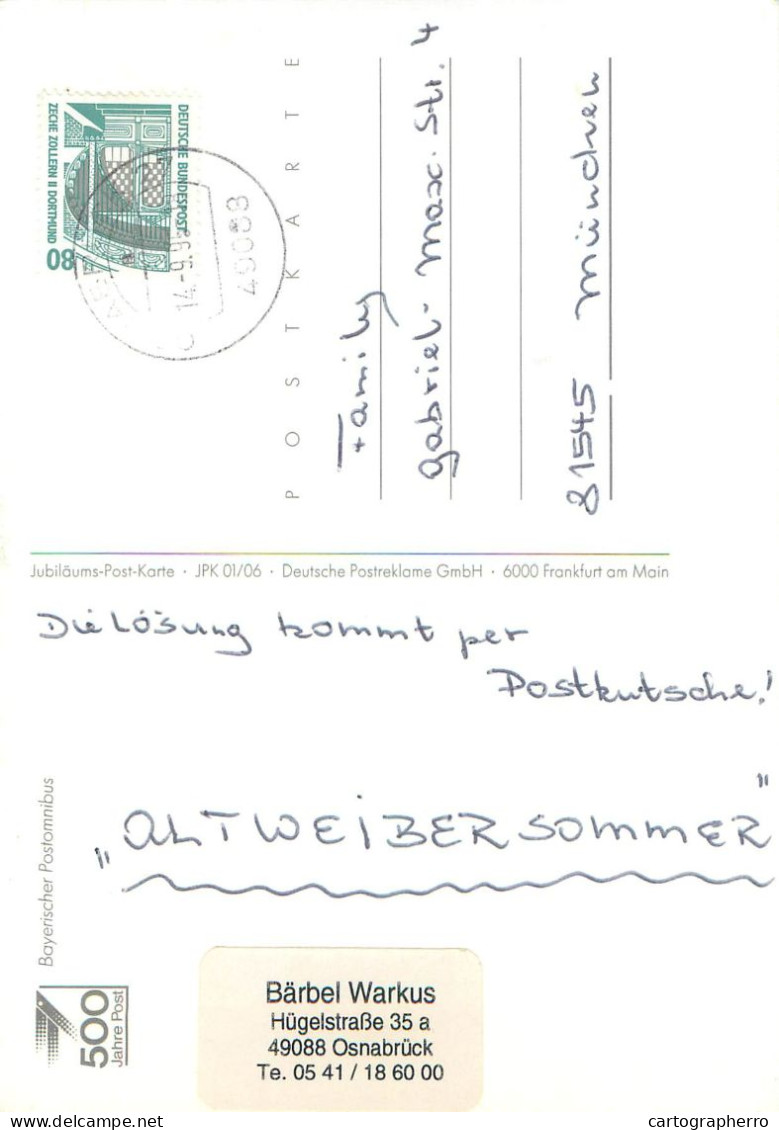 DEUTSCHE BUNDESPOST
ZECHE ZOLLERN II DORTMUND
80
14.-9.95
49088
POSTKARTE
Family
Gabriel-Max-Str. 4
81545 München
Jubiläums-Post-Karte · JPK 01/06 · Deutsche Postreklame GmbH · 6000 Frankfurt am Main
Die Lösung kommt per
Postkutsche!
„ALTWEIBERSOMMER"
Bayerischer Postomnibus
500
Jahre Post
Bärbel Warkus
Hügelstraße 35 a
49088 Osnabrück
Te. 05 41 / 18 60 00
cartographerro